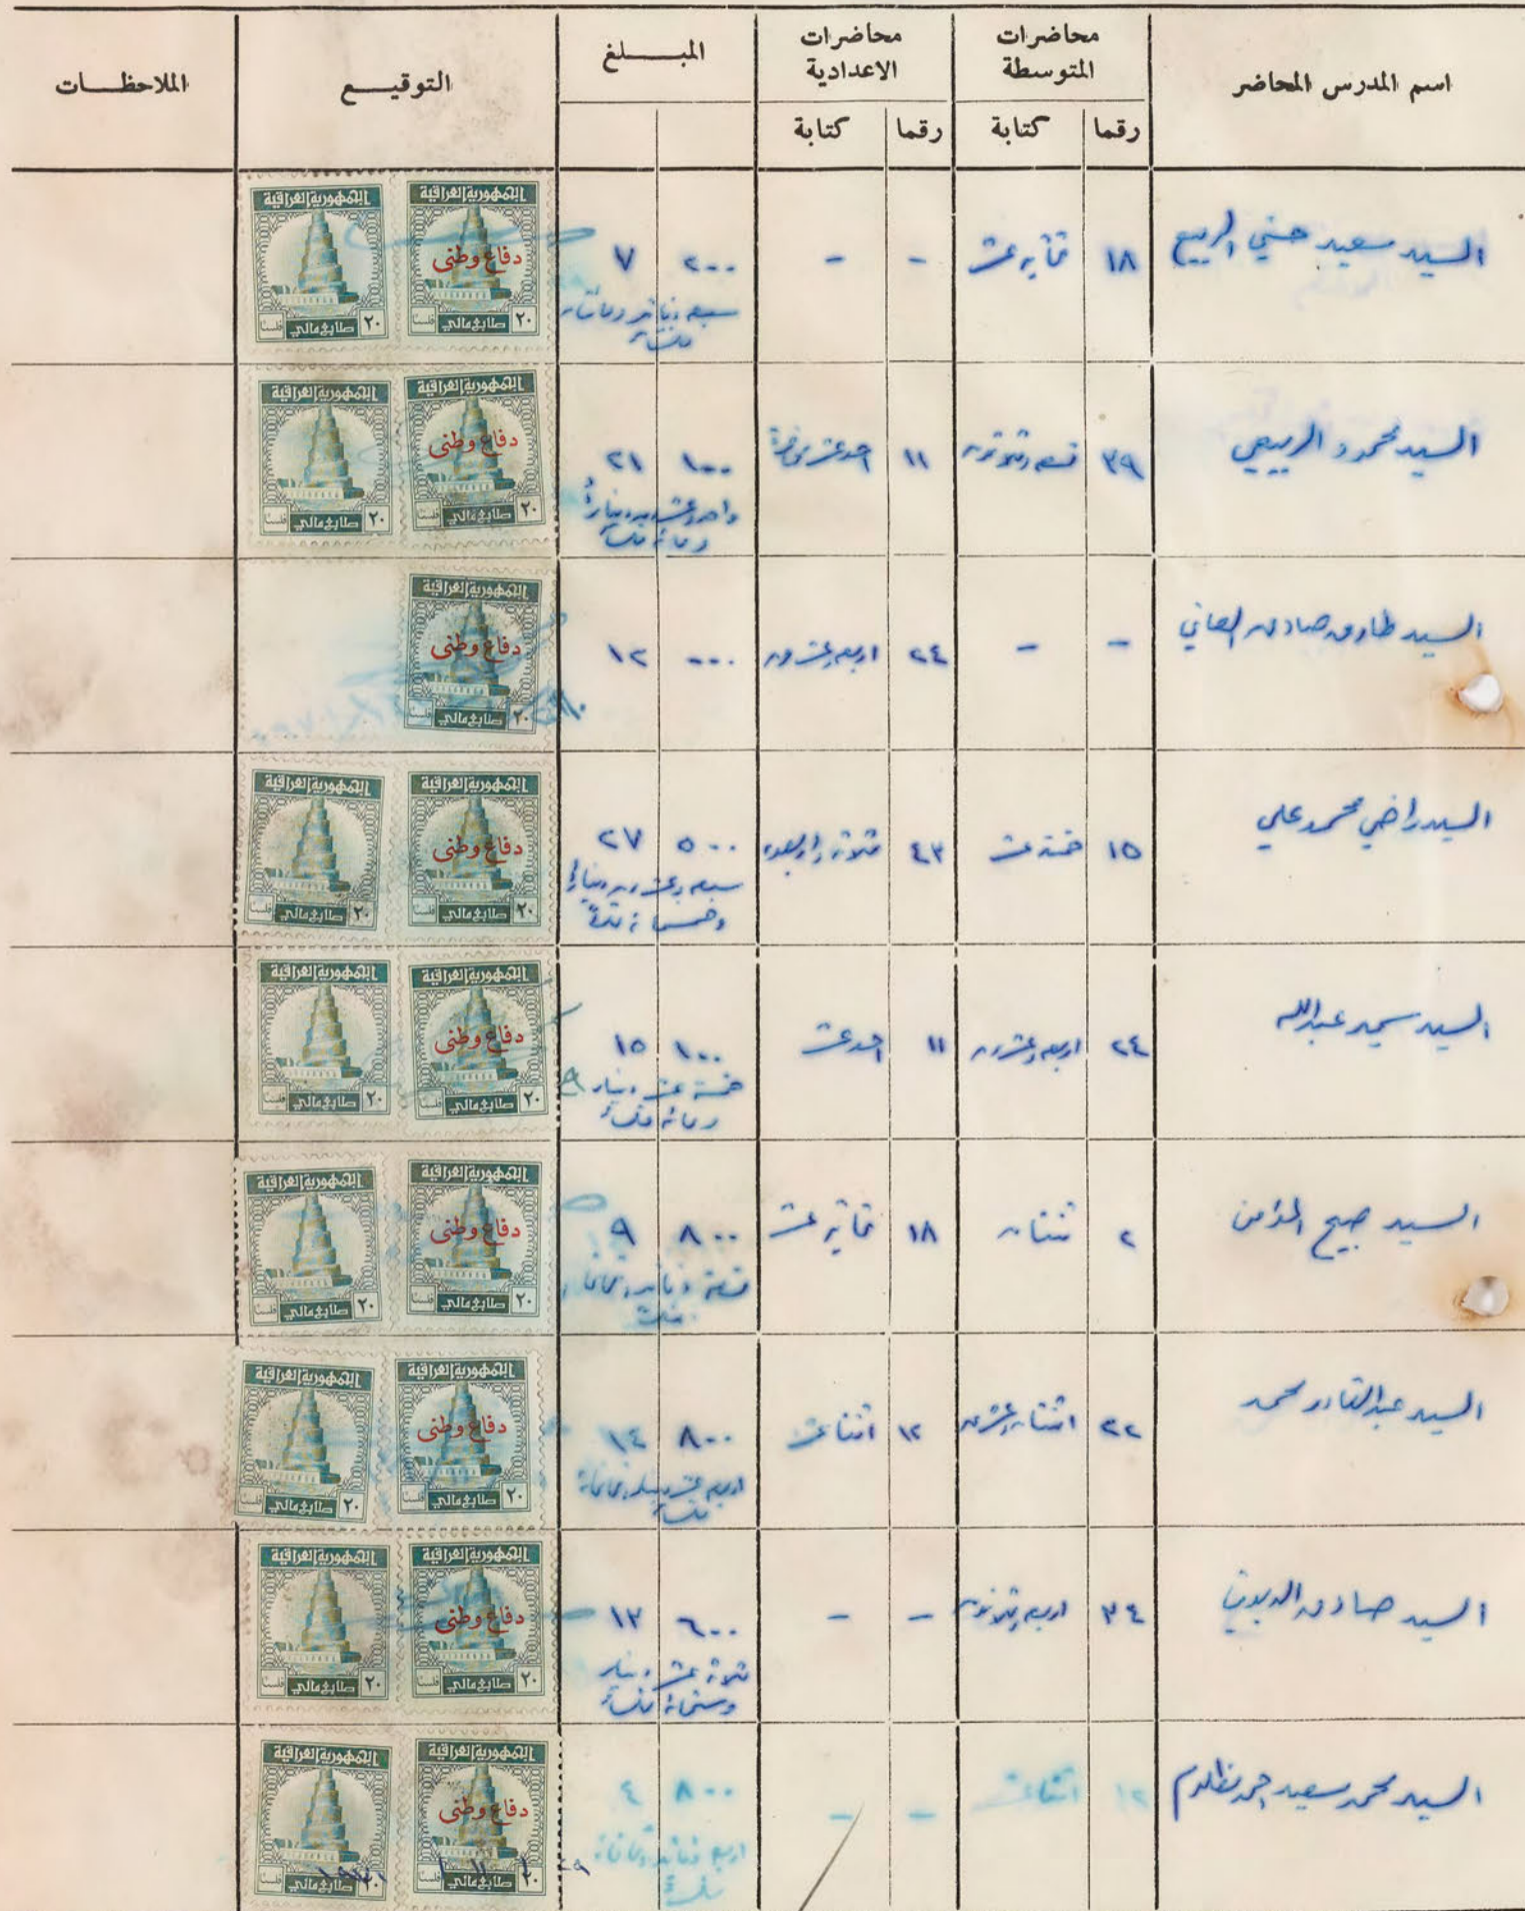 اسم المدرس المحاضر
محاضرات المتوسطة
رقما كتابة
محاضرات الاعدادية
رقما كتابة
المبلغ
التوقيع
الملاحظات
السيد سعيد حسني الربيع ١٨ ثمانية عشر - - ٢٠٠ ٧
سبعة دنانير ومائتان
فلسا
الجمهورية العراقية دفاع وطني ٢٠ طابع مالي فلسا
الجمهورية العراقية ٢٠ طابع مالي فلسا
السيد محمود الربيعي ٣٩ تسعة وثلاثون ١١ احد عشر محاضرة ١٠٠ ٢١
واحد وعشرون دينارا
ومائة فلسا
الجمهورية العراقية دفاع وطني ٢٠ طابع مالي فلسا
الجمهورية العراقية ٢٠ طابع مالي فلسا
السيد طارق صادق العاني - - ٢٤ اربعة وعشرون ٠٠٠ ١٢
الجمهورية العراقية دفاع وطني ٢٠ طابع مالي فلسا
السيد راضي محمد علي ١٥ خمسة عشر ٤٣ ثلاثة واربعون ٥٠٠ ٢٧
سبعة وعشرون دينارا
وخمسمائة فلسا
الجمهورية العراقية دفاع وطني ٢٠ طابع مالي فلسا
الجمهورية العراقية ٢٠ طابع مالي فلسا
السيد سمير عبدالله ٢٤ اربعة وعشرون ١١ احد عشر ١٠٠ ١٥
خمسة عشر دينار
ومائة فلسا
الجمهورية العراقية دفاع وطني ٢٠ طابع مالي فلسا
الجمهورية العراقية ٢٠ طابع مالي فلسا
السيد صبيح المؤمن ٢ اثنتان ١٨ ثمانية عشر ٨٠٠ ٩
تسعة دنانير وثمانمائة
فلسا
الجمهورية العراقية دفاع وطني ٢٠ طابع مالي فلسا
الجمهورية العراقية ٢٠ طابع مالي فلسا
السيد عبدالقادر محمد ٢٢ اثنتان وعشرون ١٢ اثنتا عشر ٨٠٠ ١٤
اربعة عشر دينار وثمانمائة
فلسا
الجمهورية العراقية دفاع وطني ٢٠ طابع مالي فلسا
الجمهورية العراقية ٢٠ طابع مالي فلسا
السيد صادق ٣٤ اربعة وثلاثون - - ٦٠٠ ١٣
ثلاثة عشر دينار
وستمائة فلسا
الجمهورية العراقية دفاع وطني ٢٠ طابع مالي فلسا
الجمهورية العراقية ٢٠ طابع مالي فلسا
السيد محمد سعيد احمد مظلوم ١٢ اثنتا عشر - - ٨٠٠ ٤
اربعة دنانير وثمانمائة
فلسا
الجمهورية العراقية دفاع وطني ٢٠ طابع مالي فلسا
الجمهورية العراقية ٢٠ طابع مالي فلسا